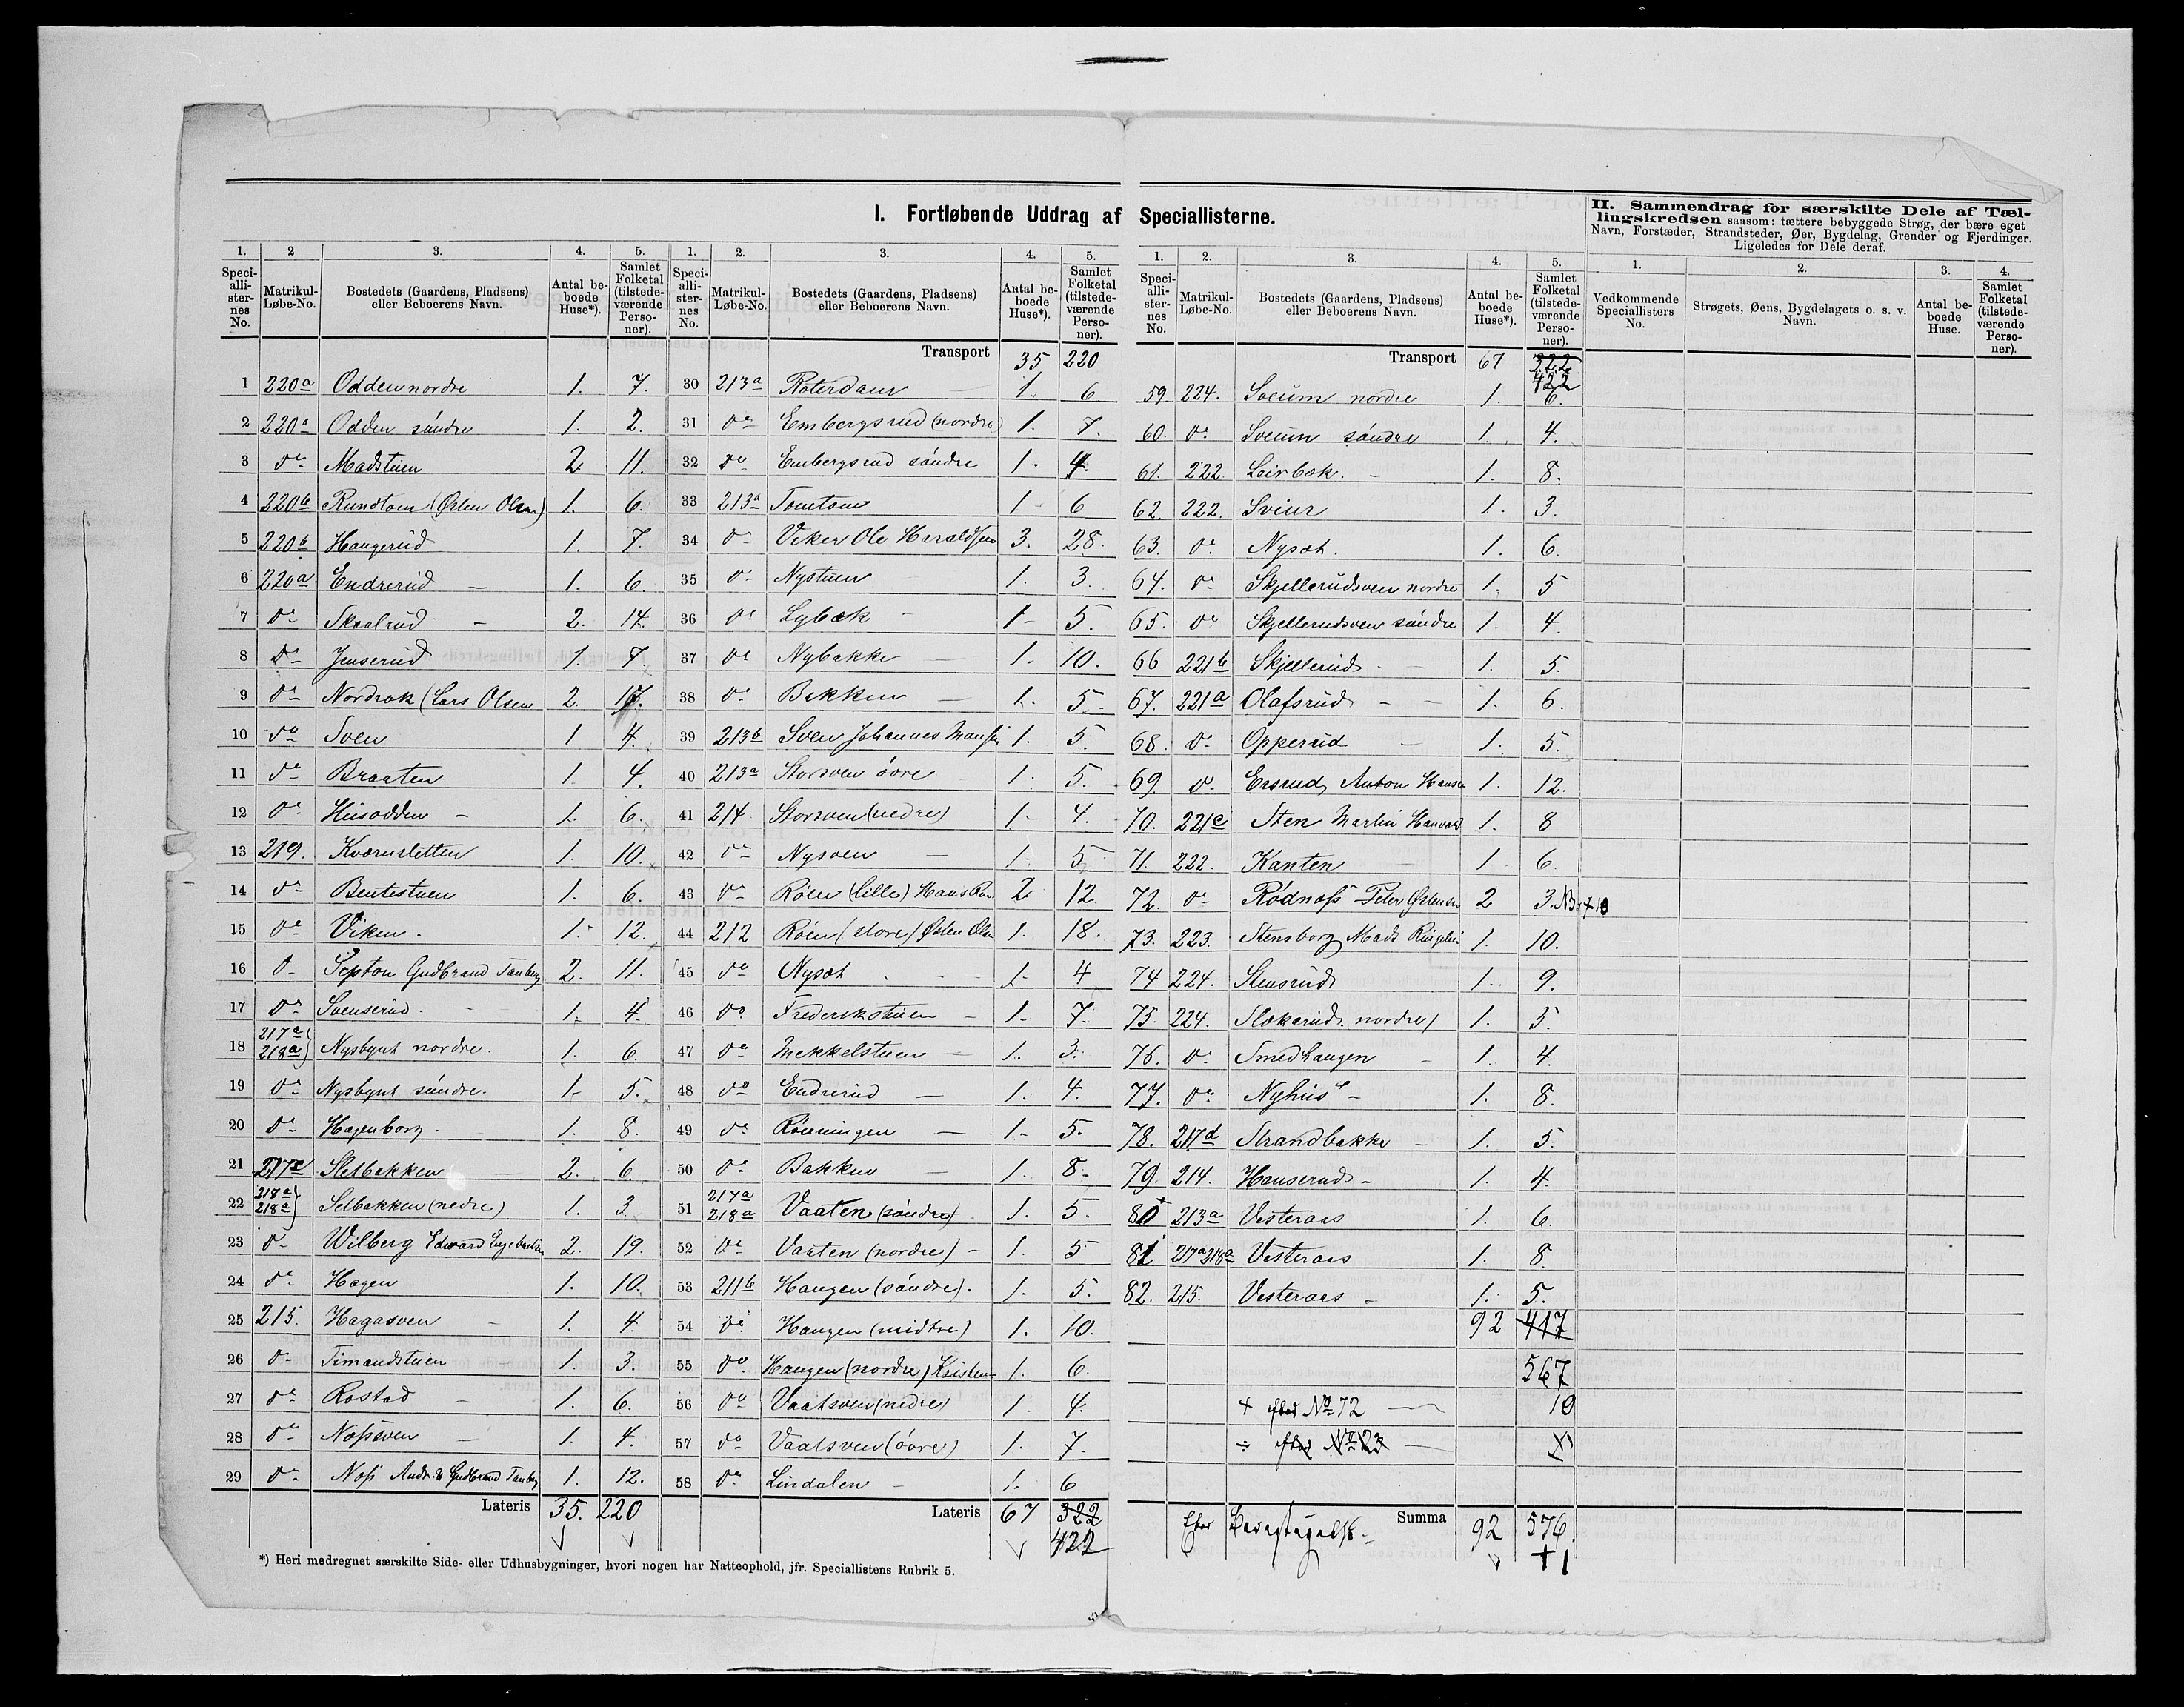 I. Fortløbende Uddrag af Speciallisterne.
II. Sammendrag for særskilte Dele af Tæl-
lingskredsen saasom: tættere bebyggede Strøg, der bære eget
Navn, Forstæder, Strandsteder, Øer, Bygdelag, Grender og Fjerdinger.
Ligeledes for Dele deraf.
1. 2 3. 4. 5.
Speci-alli-ster-nes No. Matrikul-Løbe-No. Bostedets (Gaardens, Pladsens) eller Beboerens Navn. Antal be-boede Huse*). Samlet Folketal (tilstede-værende Perso-ner).
1 220a Odden nordre 1. 7.
2 220a Odden søndre 1. 2.
3 do Madstuen 2 11.
4 220b Rundtom (Østen Olsen) 1. 6.
5 220b Haugerud 1. 7.
6 220a Endrerud 1. 6.
7 do Skaalrud 2. 14.
8 do Jenserud 1. 7.
9 do Nordrak (Lars Olsen 2. 17.
10 do Sven 1 4.
11 do Braaten 1. 4.
12 do Husodden 1. 6.
13 219. Kværnsletten 1. 10.
14 do Bentestuen 1. 6.
15 do Viken. 1. 12.
16 do Gudbrand Tanberg 2. 11.
17 do Svenserud. 1. 4.
18 217a 218a} Nysbynt nordre. 1. 6.
19 do Nysbynt søndre. 1. 5.
20 do Hagenborg. 1. 8.
21 217c Sletbakken 2. 6.
22 218a 218a} Selbakken (nedre) 1. 3.
23 do Wilberg Edward 2. 19.
24 do Hagen 1. 10.
25 215. Hagasven 1. 4.
26 do Timandstuen 1. 3.
27 do Rostad 1. 6.
28 do Næssven 1. 4.
29 do Næss Gudbrand Tanberg 1. 12.
Lateris 35. 220
1. 2. 3. 4. 5.
Speci-alli-ster-nes No. Matrikul-Løbe-No. Bostedets (Gaardens, Pladsens) eller Beboerens Navn. Antal be-boede Huse*). Samlet Folketal (tilstede-værende Perso-ner).
Transport 35 220
30 213a Roterdam 1. 6
31 do Embergsrud (nordre) 1. 7.
32 do Embergsrud søndre 1. 4.
33 213a Tomtom 1 6
34 do Viker Ole Haraldsen 3. 28.
35 do Nystuen 1. 3.
36 do Lybæk 1 5.
37 do Nybakke 1. 10.
38 do Bekken 1. 5.
39 213b Sven Johannes 1. 5.
40 213a Storsven øvre 1. 5.
41 214 Storsven (nedre) 1 4.
42 do Nysven 1. 5
43 do Røen (lille) Hans 2 12.
44 212 Røen (store) Østen Olsen 1. 18.
45 do Nysæt 1 4
46 do Frederikstuen 1. 7.
47 do Mekkelstuen 1. 3.
48 do Endrerud 1. 4.
49 do Rønningen 1. 5.
50 do Bakken 1. 8.
51 217a 218a Vaaten (søndre) 1. 5.
52 do Vaaten (nordre) 1. 5
53 211b Haugen (søndre). 1. 5.
54 do Haugen (midtre) 1. 10.
55 do Haugen (nordre) Kristen 1. 6.
56 do Vaatsven (nedre) 1. 4.
57 do Vaatsven (øvre) 1. 7.
58 do Lindalen 1. 6
Lateris 67 322
422
*) Heri medregnet særskilte Side- eller Udhusbygninger, hvori nogen har Natteophold, jfr. Speciallistens Rubrik 5.
1. 2. 3. 4. 5.
Speci-alli-ster-nes No. Matrikul-Løbe-No. Bostedets (Gaardens, Pladsens) eller Beboerens Navn. Antal be-boede Huse*). Samlet Folketal (tilstede-værende Perso-ner).
Transport 67 322
422
59. 224. Sveum nordre 1. 6.
60. do Sveum søndre 1. 4.
61. 222. Leirbæk. 1. 8.
62. 222. Sviur 1. 3.
63. do Nysæt. 1. 6.
64. do Skjellerudsven nordre 1. 5
65. do Skjellerudsven søndre 1. 4.
66 221b Skjellerud 1. 5.
67. 221a Olafsrud 1. 6.
68. do Opperud 1. 5.
69. do Ersrud, Anton Hansen 1. 12.
70. 221c Sten Martin 1. 8
71. 222. Kanten 1 6.
72. do Rødnæss Peter Østensen 2 3. NB +10
73. 223. Stensborg Mads 1. 10.
74 224. Stensrud 1. 9.
75. 224. Slokerud nordre) 1. 5.
76. do Smedhaugen 1. 4.
77. do Nyhus 1. 8.
78. 217d Strandbakke 1. 5.
79. 214. Hanserud 1. 4.
80 213a Vesteraas 1. 6.
81 217a 218a Vesteraas 1. 8.
82. 215. Vesteraas 1. 5.
92 417
567
+ No 72 10
÷ No 23
Summa 92 576.
+1
1. 2. 3. 4.
Vedkommende Speciallisters No. Strøgets, Øens, Bygdelagets o. s. v. Navn. Antal be-boede Huse. Samlet Folketal (tilstede-værende Perso-ner).